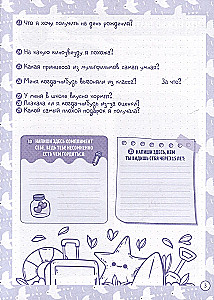 Что я хочу получить на день рождения?
На какую кинозвезду я похожа?
Какая принцесса из мультфильмов самая умная?
Меня когда-нибудь выгоняли из класса? За что?
У меня в школе вкусно кормят?
Плакала ли я когда-нибудь из-за оценки?
Какой самый плохой подарок я получала?
НАПИШИ ЗДЕСЬ КОМПЛИМЕНТ
СЕБЕ, ВЕДЬ ТЕБЕ НЕСОМНЕННО
ЕСТЬ ЧЕМ ГОРДИТЬСЯ.
НАПИШИ ЗДЕСЬ, КЕМ
ТЫ ВИДИШЬ СЕБЯ ЧЕРЕЗ 15 ЛЕТ: